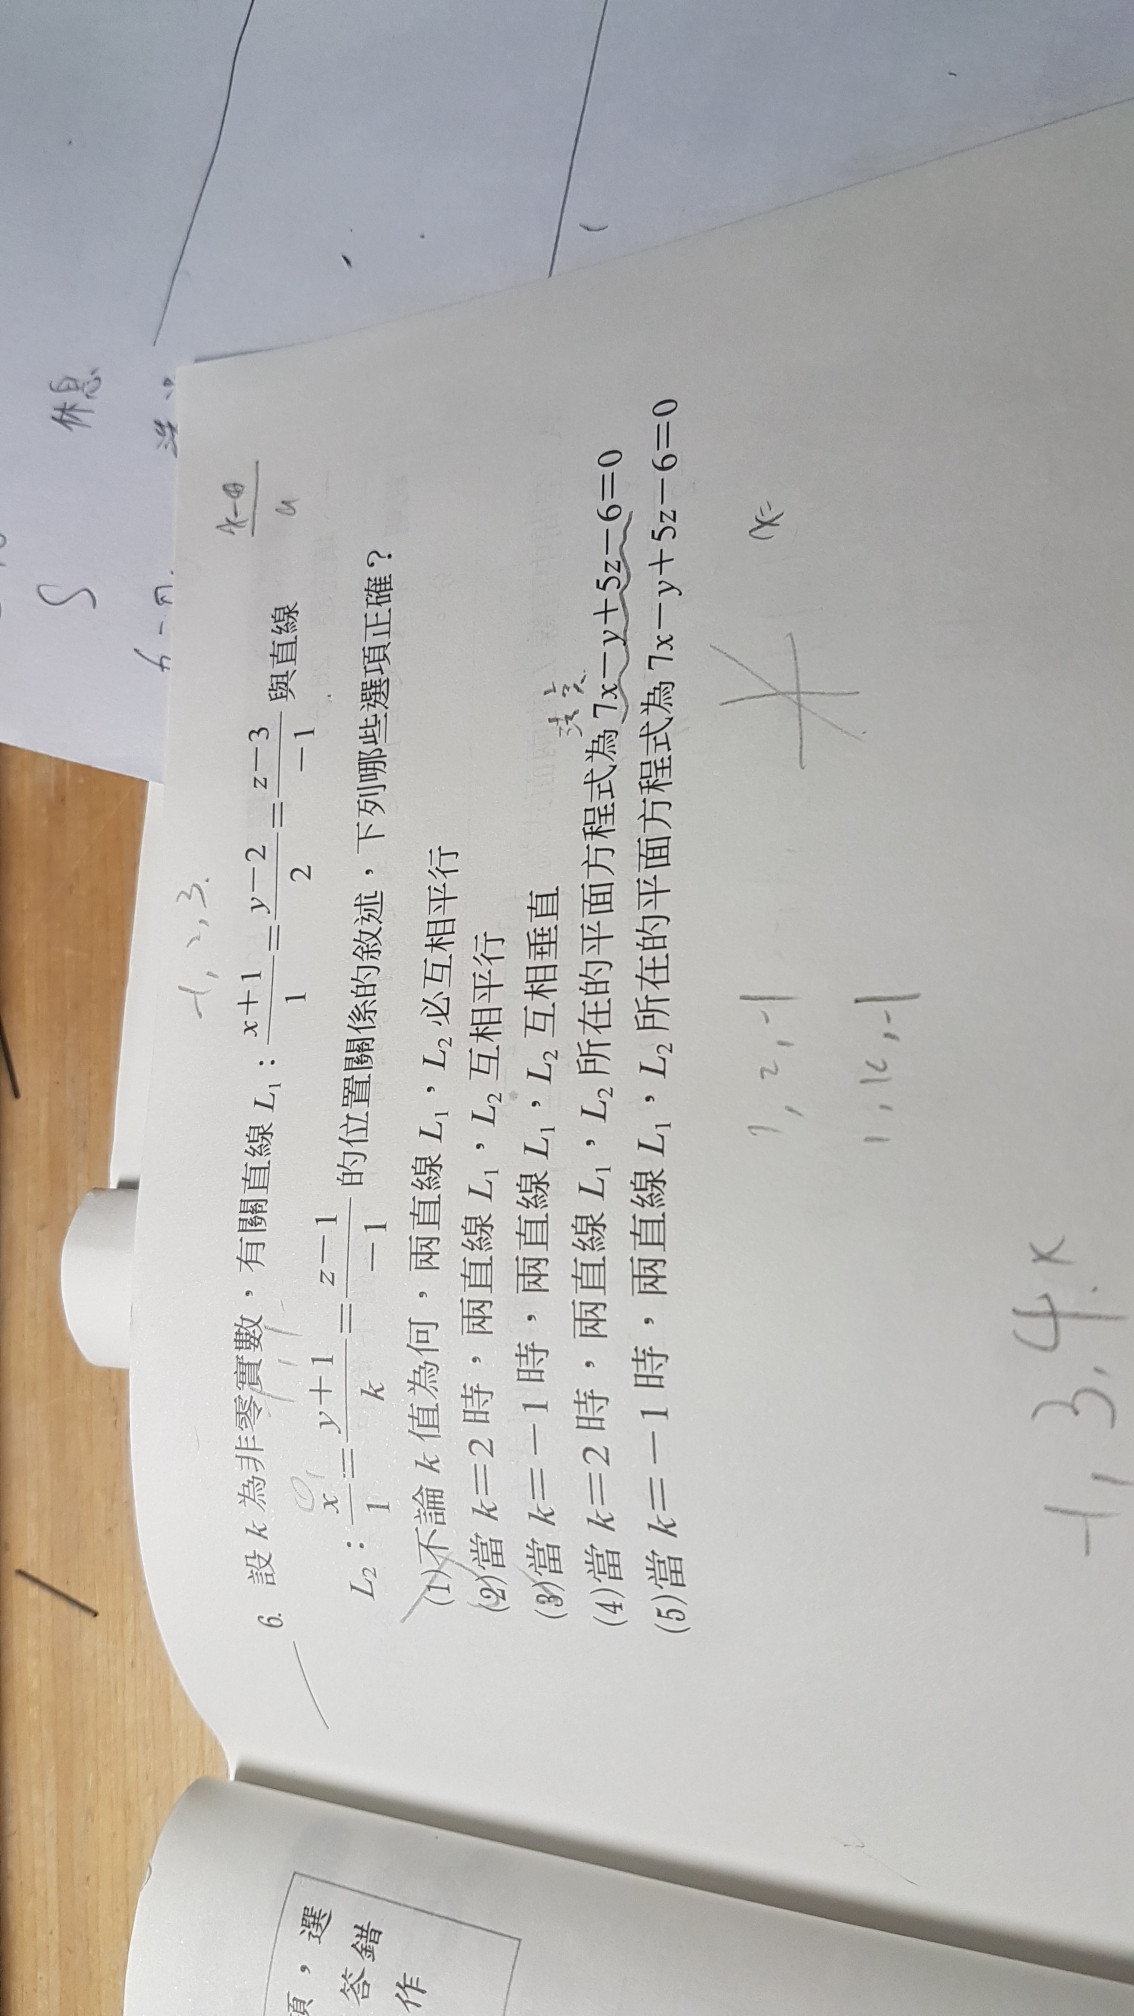 休息
-1, 2, 3.
6. 設 k 為非零實數,有關直線 L₁:(x+1)/1=(y-2)/2=(z-3)/-1 與直線
L₂:x/1=(y+1)/k=(z-1)/-1 的位置關係的敘述,下列哪些選項正確?
(1)不論 k 值為何,兩直線 L₁,L₂ 必互相平行
(2)當 k=2 時,兩直線 L₁,L₂ 互相平行
(3)當 k=-1 時,兩直線 L₁,L₂ 互相垂直
(4)當 k=2 時,兩直線 L₁,L₂ 所在的平面方程式為 7x-y+5z-6=0
(5)當 k=-1 時,兩直線 L₁,L₂ 所在的平面方程式為 7x-y+5z-6=0
1, 2, -1
1, k, -1
項,選
答錯
作